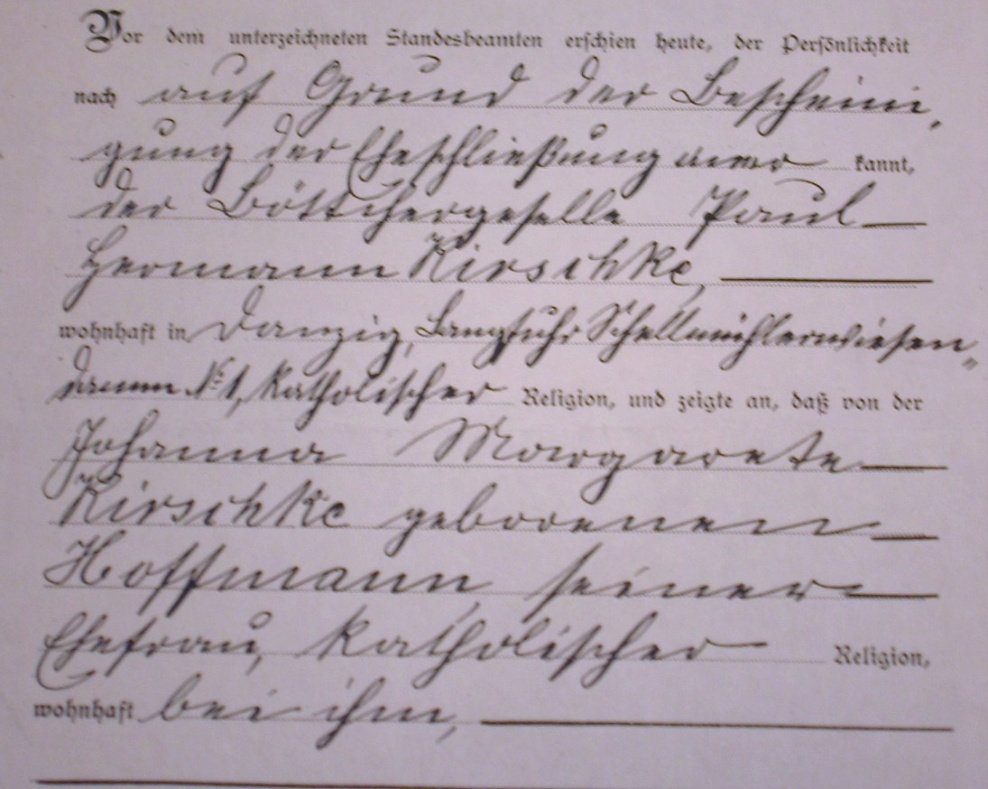 Vor dem unterzeichneten Standesbeamten erschien heute, der Persönlichkeit
nach auf Grund der Bescheini-
gung der Eheschließung aner kannt,
der Böttchergeselle Paul
Hermann Kirschke,
wohnhaft in Danzig, Langfuhr Schellmühlerwiesen-
damm No 1, katholischer Religion, und zeigte an, daß von der
Johanna Margarete
Kirschke geborenen
Hoffmann, seiner
Ehefrau, katholischer Religion,
wohnhaft bei ihm,